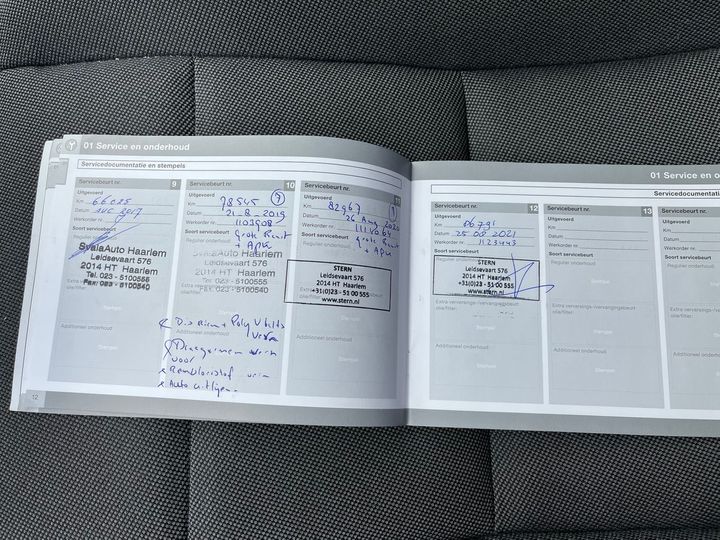 01 Service en onderhoud
Servicedocumentatie en stempels
Servicebeurt nr. 9
Uitgevoerd
Km 66025
Datum 2017
Werkorder nr.
Soort servicebeurt
Regulier onderhoud:
SvalaAuto Haarlem
Leidsevaart 576
2014 HT Haarlem
Tel. 023 - 5100555
Fax: 023 - 5100540
Additioneel onderhoud:
Stempel
12
Servicebeurt nr. 10
Uitgevoerd
Km 78545
Datum 21-8-2019
Werkorder nr. 1103508
Soort servicebeurt grote Beurt
Regulier onderhoud: + APK
SvalaAuto Haarlem
Leidsevaart 576
2014 HT Haarlem
Tel. 023 - 5100555
Fax: 023 - 5100540
Distributie + Poly V belt
voor
Remvloeistof
Auto uitlijnen
Servicebeurt nr. 11
Uitgevoerd
Km 82967
Datum 26 Aug 2020
Werkorder nr.
Soort servicebeurt grote Beurt
Regulier onderhoud: + APK
STERN
Leidsevaart 576
2014 HT Haarlem
+31(0)23 - 51 00 555
www.stern.nl
Extra verversings-/vervangingsbeurt
olie/filter:
Stempel
Additioneel onderhoud:
Stempel
01 Service en o
Servicedocumentati
Servicebeurt nr. 12
Uitgevoerd
Km
Datum 25 08 2021
Werkorder nr. 1123443
Soort servicebeurt
Regulier onderhoud:
STERN
Leidsevaart 576
2014 HT Haarlem
+31(0)23 - 51 00 555
www.stern.nl
Extra verversings-/vervangingsbeurt
olie/filter:
Additioneel onderhoud:
Stempel
Servicebeurt nr. 13
Uitgevoerd
Km
Datum
Werkorder nr.
Soort servicebeurt
Regulier onderhoud:
Stempel
Extra verversings-/vervangingsbeurt
olie/filter:
Stempel
Additioneel onderhoud:
Stempel
Servicebeurt nr.
Uitgevoerd
Km
Datum
Werkorder nr.
Soort servicebeurt
Regulier onderhoud:
Extra verversings
olie/filter:
Additioneel onder